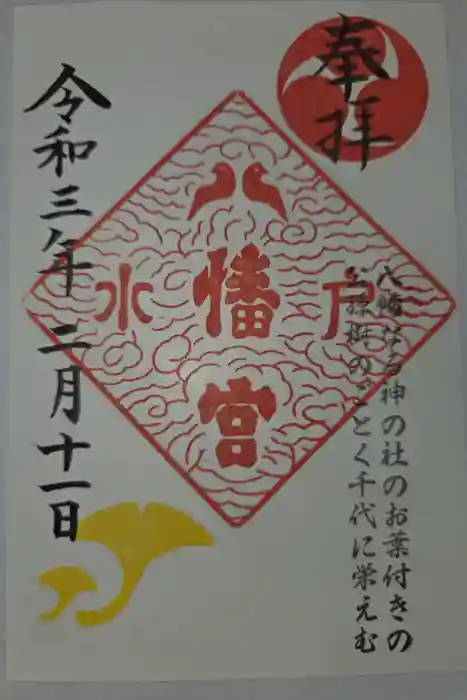 奉拝
八幡なる神の社のお葉付きの
公孫樹のごとく千代に栄えむ
八幡宮
水戸
令和三年二月十一日